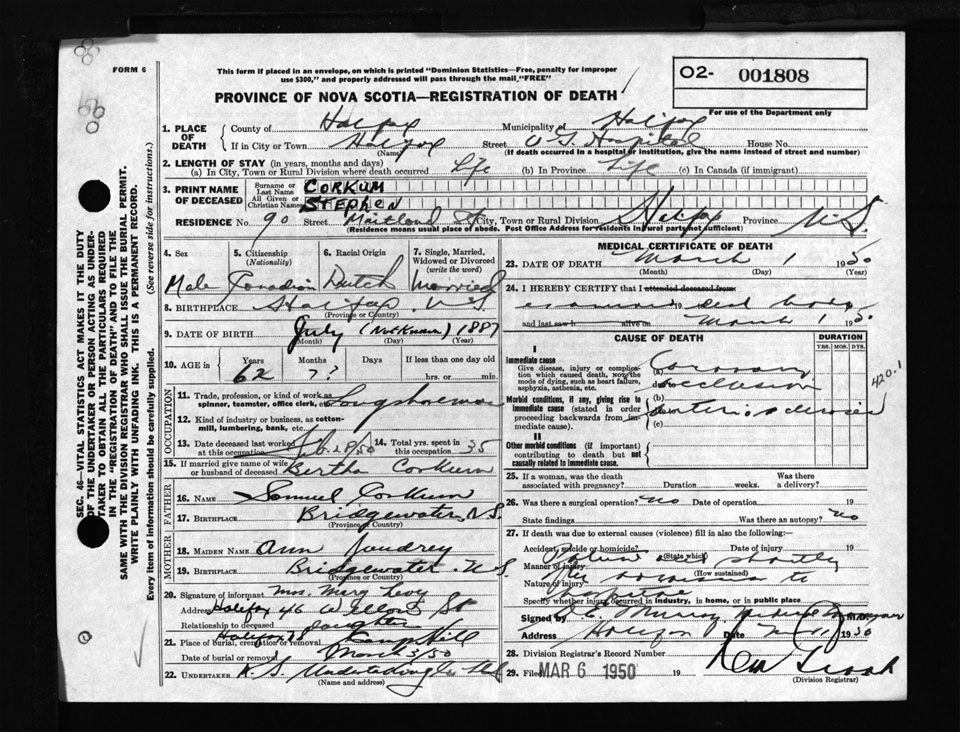 FORM 6
This form if placed in an envelope, on which is printed "Dominion Statistics—Free, penalty for improper
use $300," and properly addressed will pass through the mail, "FREE"
PROVINCE OF NOVA SCOTIA—REGISTRATION OF DEATH
O2- 001808
For use of the Department only
1. PLACE OF DEATH
County of Halifax Municipality of Halifax
If in City or Town Halifax Street V G Hospital House No.
(Name) (If death occurred in a hospital or institution, give the name instead of street and number)
2. LENGTH OF STAY (in years, months and days)
(a) In City, Town or Rural Division where death occurred Life (b) In Province Life (c) In Canada (if immigrant)
3. PRINT NAME OF DECEASED
Surname or Last Name CORKUM
All Given or Christian Names STEPHEN
RESIDENCE No. 90 Street Maitland St City, Town or Rural Division Halifax Province N.S.
(Residence means usual place of abode. Post Office Address for residents in rural parts not sufficient)
4. Sex
5. Citizenship (Nationality)
6. Racial Origin
7. Single, Married, Widowed or Divorced (write the word)
Male Canadian Dutch Married
8. BIRTHPLACE Halifax N.S.
(Province or Country)
9. DATE OF BIRTH July (Not Known) 1887
(Month) (Day) (Year)
10. AGE in Years Months Days If less than one day old
62 7? hrs. or min.
OCCUPATION
11. Trade, profession, or kind of work as spinner, teamster, office clerk, etc. Longshoreman
12. Kind of industry or business, as cotton-mill, lumbering, bank, etc.
13. Date deceased last worked at this occupation Feb 28/50 14. Total yrs. spent in this occupation 35
15. If married give name of wife or husband of deceased Bertha Corkum
FATHER
16. NAME Samuel Corkum
17. BIRTHPLACE Bridgewater, N.S.
(Province or Country)
MOTHER
18. MAIDEN NAME Ann Joudrey
19. BIRTHPLACE Bridgewater N.S.
(Province or Country)
20. Signature of informant Mrs. Mary Levy
Address Halifax 46 St
Relationship to deceased daughter
21. Place of burial, cremation or removal Halifax NS Camp Hill
Date of burial or removal March 3/50
22. UNDERTAKER
(Name and address)
MEDICAL CERTIFICATE OF DEATH
23. DATE OF DEATH March 1 1950
(Month) (Day) (Year)
24. I HEREBY CERTIFY that I attended deceased from
examined 19 dead body
and last saw h alive on March 1 1950
CAUSE OF DEATH
DURATION
YRS. MOS. DYS.
I
Immediate cause
Give disease, injury or complication which caused death, not the mode of dying, such as heart failure, asphyxia, asthenia, etc.
(a) Coronary occlusion
420.1
Morbid conditions, if any, giving rise to immediate cause (stated in order proceeding backwards from immediate cause).
(b)
arteriosclerosis
(c)
II
Other morbid conditions (if important) contributing to death but not causally related to immediate cause.
25. If a woman, was the death associated with pregnancy? Duration weeks. Was there a delivery?
26. Was there a surgical operation? no Date of operation 19
State findings Was there an autopsy? no
27. If death was due to external causes (violence) fill in also the following:
Accident, suicide or homicide? Date of injury 19
(State which)
Manner of injury Patient died shortly
(How sustained)
Nature of injury after admission to
Specify whether injury occurred in industry, in home, or in public place
hospital
Signed by Medical Examiner M.D.
Address Halifax Date 1950
28. Division Registrar's Record Number
29. Filed MAR 6 1950 19
(Division Registrar)
SEC. 46—VITAL STATISTICS ACT MAKES IT THE DUTY
OF THE UNDERTAKER OR PERSON ACTING AS UNDER-
TAKER TO OBTAIN ALL THE PARTICULARS REQUIRED
IN THE "REGISTRATION OF DEATH" AND TO FILE THE
SAME WITH THE DIVISION REGISTRAR WHO SHALL ISSUE THE BURIAL PERMIT.
WRITE PLAINLY WITH UNFADING INK. THIS IS A PERMANENT RECORD.
Every item of information should be carefully supplied. (See reverse side for instructions.)